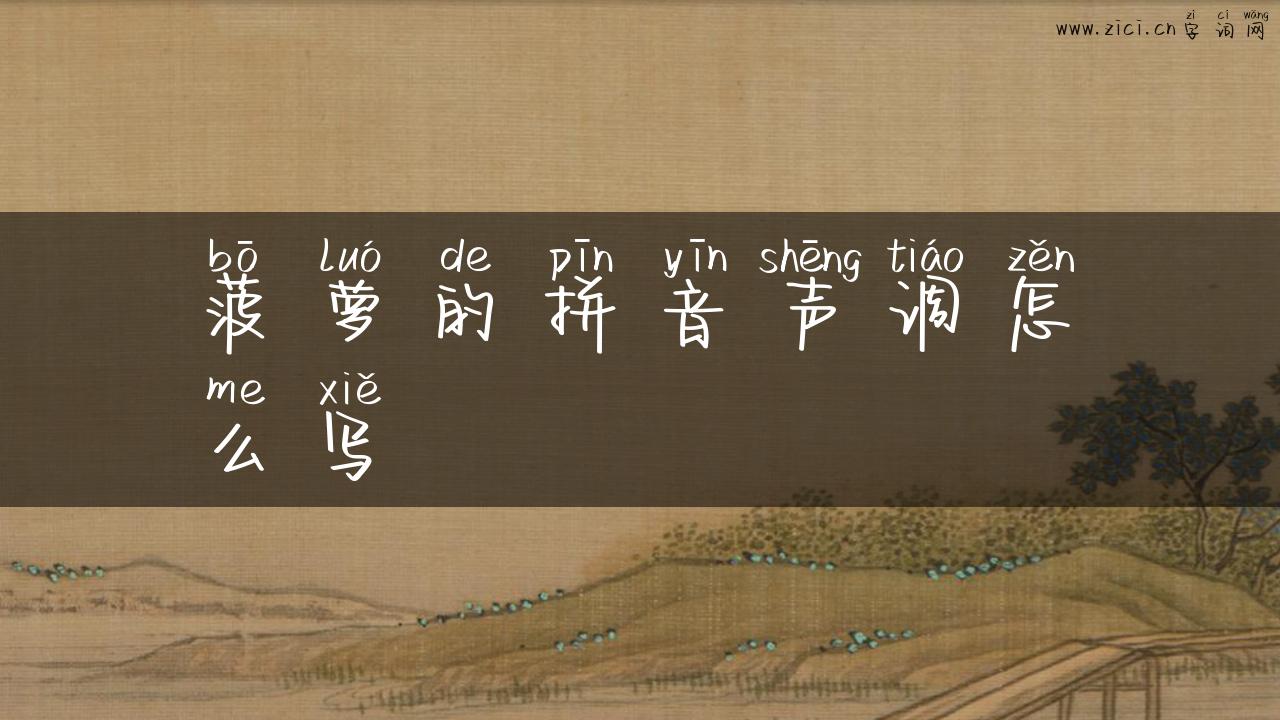 zì cí wǎng
www.zici.cn 字词网
bō luó de pīn yīn shēng tiáo zěn
菠萝的拼音声调怎
me xiě
么写